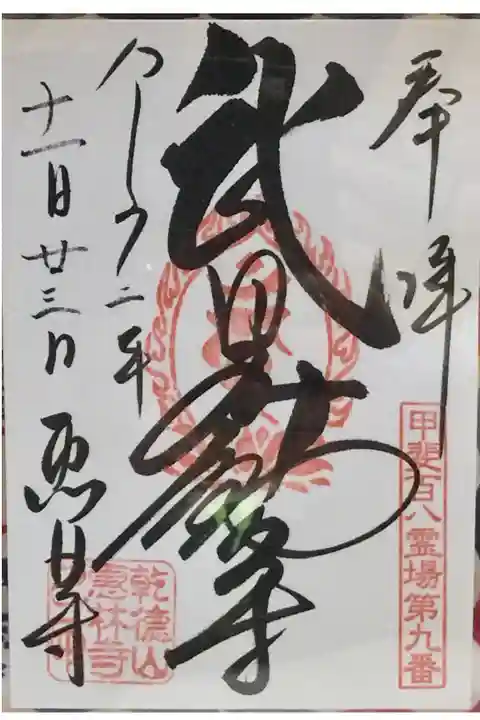 奉拝
甲斐百八霊場第九番
武田不動尊
令和二年
十一月廿三日 恵林寺
乾徳山
恵林寺